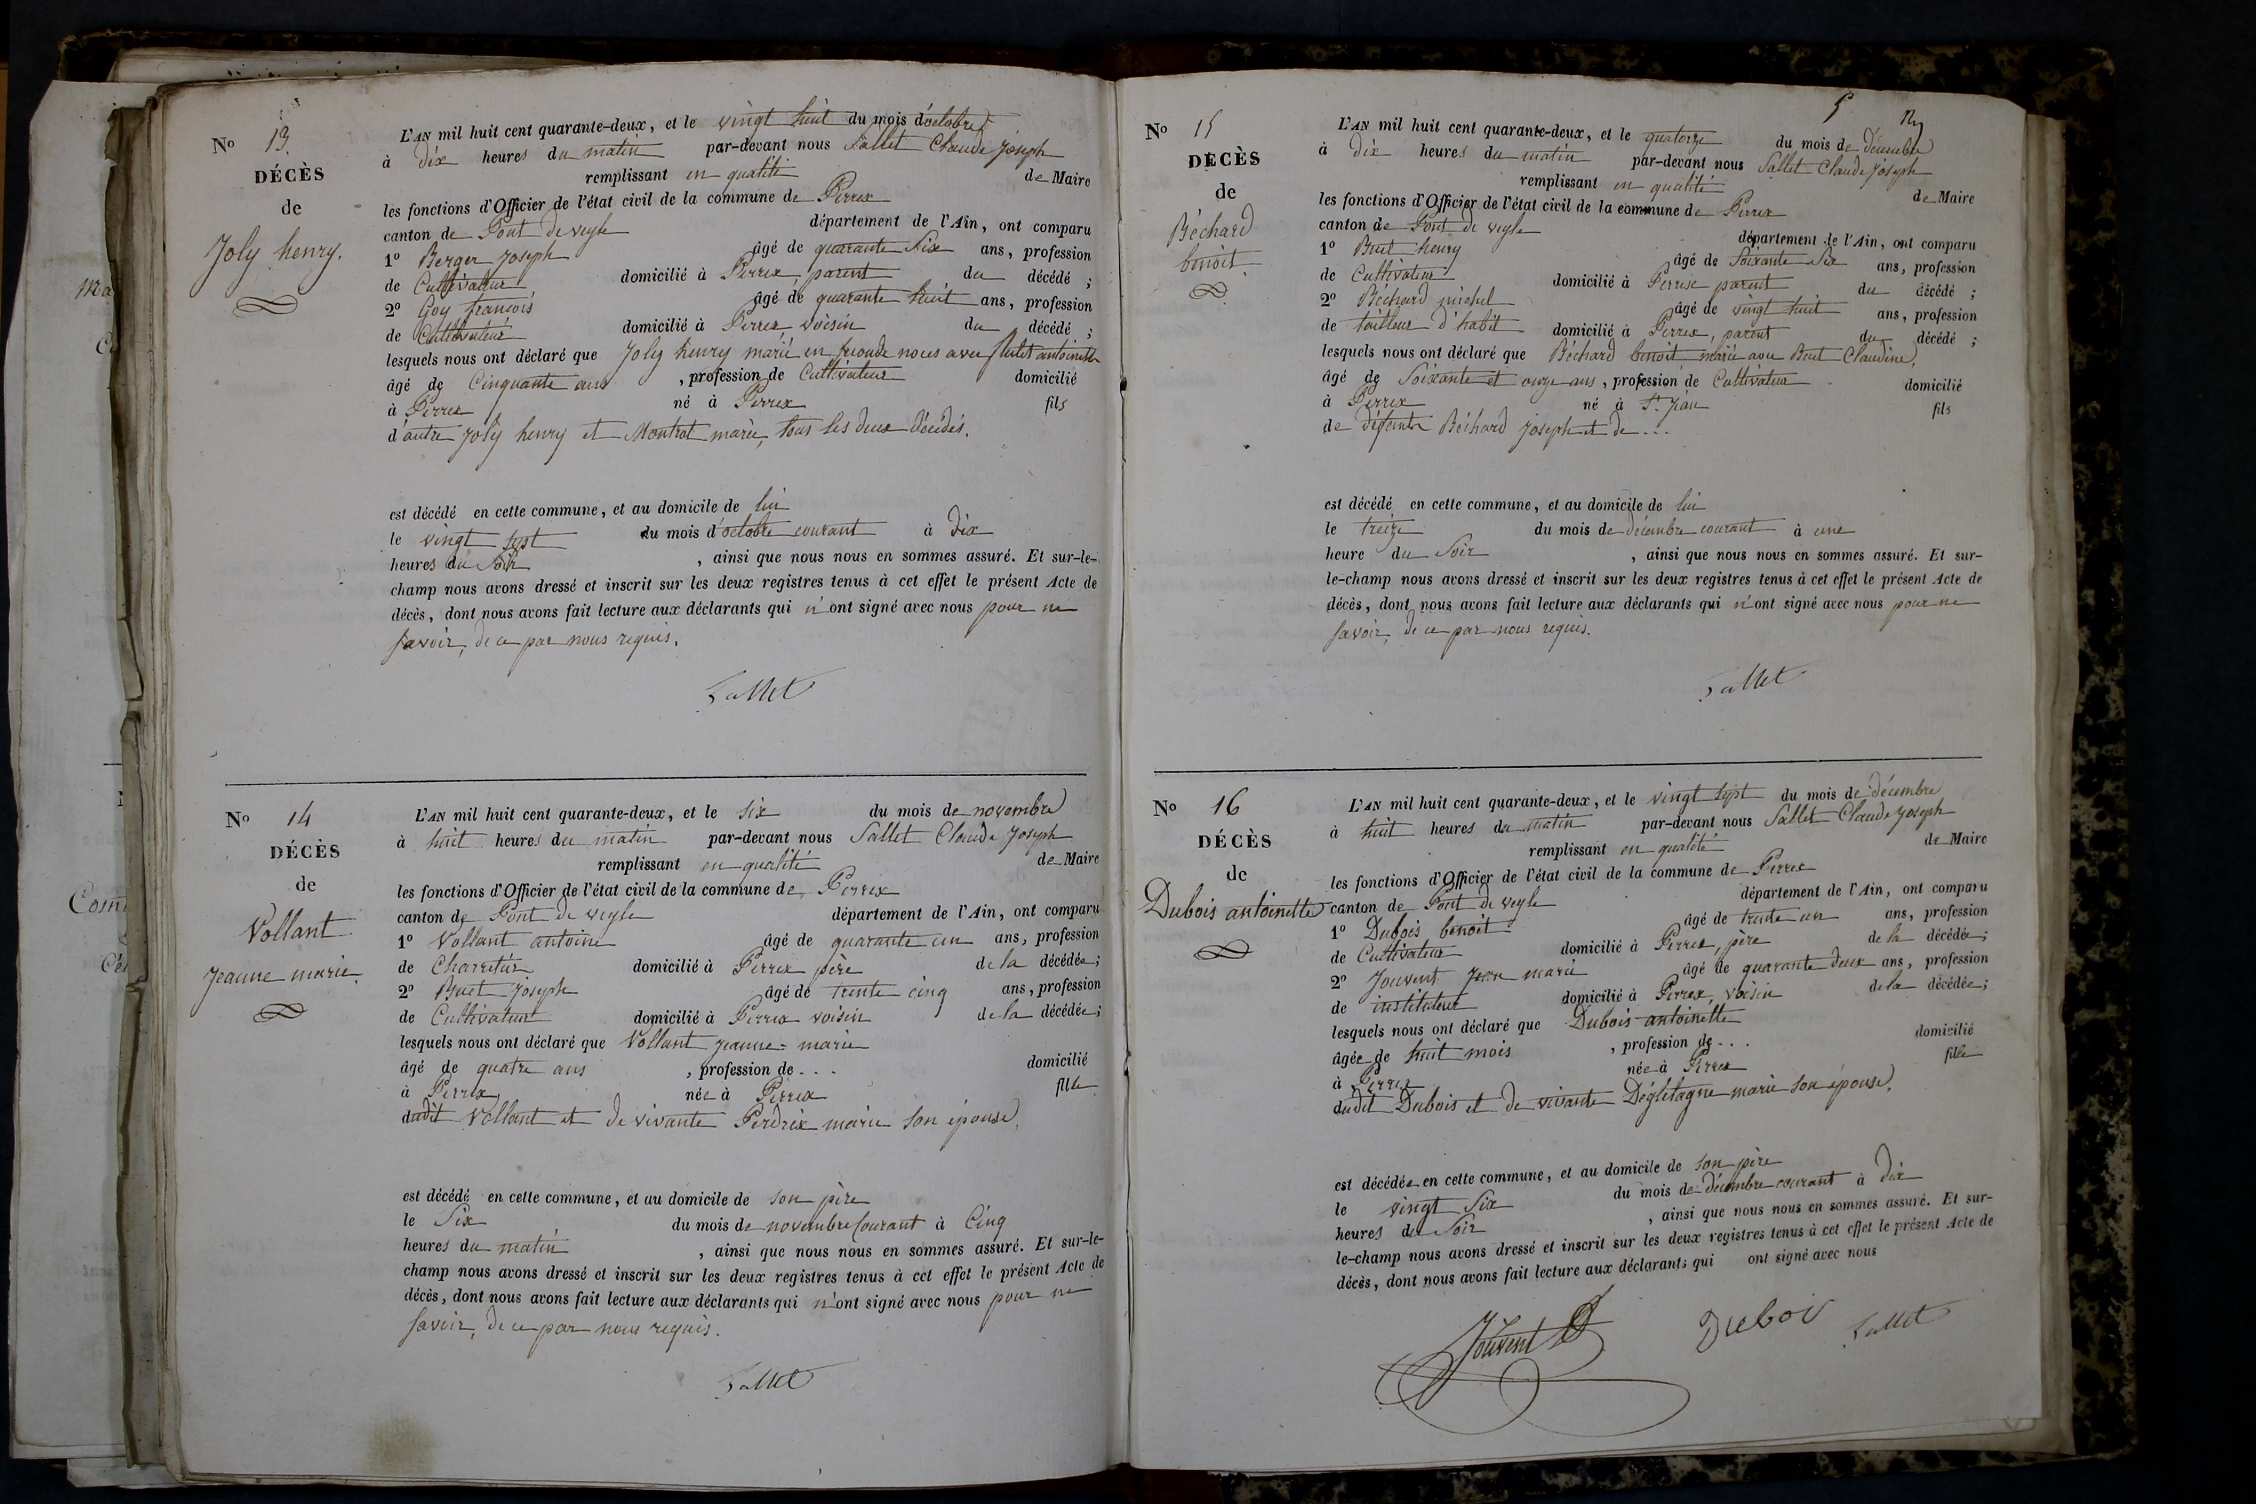 No 13.
DÉCÈS
de
Joly henry.
L'AN mil huit cent quarante-deux, et le vingt huit du mois d'octobre
à dix heures du matin par-devant nous Sallet Claude Joseph
remplissant en qualité de Maire
les fonctions d'Officier de l'état civil de la commune de Perrex
canton de Pont de veyle département de l'Ain, ont comparu
1º Berger Joseph âgé de quarante six ans, profession
de Cultivateur domicilié à Perrex parent du décédé ;
2º Goy françois âgé de quarante huit ans, profession
de Cultivateur domicilié à Perrex voisin du décédé ;
lesquels nous ont déclaré que Joly henry marié en seconde noces avec antoinette
âgé de Cinquante ans , profession de Cultivateur domicilié
à Perrex né à Perrex fils
d'autre Joly henry et Montrat marie, tous les deux décédés.
est décédé en cette commune, et au domicile de lui
le vingt sept du mois d'octobre courant à dix
heures du Soir , ainsi que nous nous en sommes assuré. Et sur-le-
champ nous avons dressé et inscrit sur les deux registres tenus à cet effet le présent Acte de
décès, dont nous avons fait lecture aux déclarants qui n'ont signé avec nous pour ne
savoir, de ce par nous requis.
Sallet
No 14
DÉCÈS
de
Vollant
Jeanne marie.
L'AN mil huit cent quarante-deux, et le six du mois de novembre
à huit heures du matin par-devant nous Sallet Claude Joseph
remplissant en qualité de Maire
les fonctions d'Officier de l'état civil de la commune de Perrex
canton de Pont de veyle département de l'Ain, ont comparu
1º Vollant antoine âgé de quarante un ans, profession
de Charretier domicilié à Perrex père de la décédée ;
2º Buet Joseph âgé de trente cinq ans, profession
de Cultivateur domicilié à Perrex voisin de la décédée ;
lesquels nous ont déclaré que Vollant jeanne-marie
âgé de quatre ans , profession de . . . domicilié
à Perrex née à Perrex fille
dudit Vollant et de vivante Perdrix marie son épouse.
est décédé en cette commune, et au domicile de son père
le Six du mois de novembre courant à Cinq
heures du matin , ainsi que nous nous en sommes assuré. Et sur-le-
champ nous avons dressé et inscrit sur les deux registres tenus à cet effet le présent Acte de
décès, dont nous avons fait lecture aux déclarants qui n'ont signé avec nous pour ne
savoir, de ce par nous requis.
Sallet
No 15
DÉCÈS
de
Béchard
benoit
L'AN mil huit cent quarante-deux, et le quatorze du mois de décembre
à dix heures du matin par-devant nous Sallet Claude Joseph
remplissant en qualité de Maire
les fonctions d'Officier de l'état civil de la commune de Perrex
canton de Pont de veyle département de l'Ain, ont comparu
1º Buet henry âgé de Soixante six ans, profession
de Cultivateur domicilié à Perrex parent du décédé ;
2º Béchard michel âgé de vingt huit ans, profession
de tailleur d'habit domicilié à Perrex, parent du décédé ;
lesquels nous ont déclaré que Béchard benoit marié avec Buet Claudine.
âgé de Soixante et onze ans , profession de Cultivateur domicilié
à Perrex né à St. Jean fils
de défunt Béchard joseph et de . . .
est décédé en cette commune, et au domicile de lui
le treize du mois de décembre courant à une
heure du Soir , ainsi que nous nous en sommes assuré. Et sur-
le-champ nous avons dressé et inscrit sur les deux registres tenus à cet effet le présent Acte de
décès, dont nous avons fait lecture aux déclarants qui n'ont signé avec nous pour ne
savoir, de ce par nous requis.
Sallet
No 16
DÉCÈS
de
Dubois antoinette
L'AN mil huit cent quarante-deux, et le vingt sept du mois de décembre
à huit heures du matin par-devant nous Sallet Claude Joseph
remplissant en qualité de Maire
les fonctions d'Officier de l'état civil de la commune de Perrex
canton de Pont de veyle département de l'Ain, ont comparu
1º Dubois benoit âgé de trente un ans, profession
de Cultivateur domicilié à Perrex, père de la décédée ;
2º Jouvent Jean marie âgé de quarante deux ans, profession
de instituteur domicilié à Perrex, voisin de la décédée ;
lesquels nous ont déclaré que Dubois antoinette
âgée de huit mois , profession de . . . domicilié
à Perrex née à Perrex fille
dudit Dubois et de vivante Dégletagne marie son épouse.
est décédée en cette commune, et au domicile de son père
le vingt Six du mois de décembre courant à dix
heures du Soir , ainsi que nous nous en sommes assuré. Et sur-
le-champ nous avons dressé et inscrit sur les deux registres tenus à cet effet le présent Acte de
décès, dont nous avons fait lecture aux déclarants qui ont signé avec nous
Jouvent Duboi Sallet